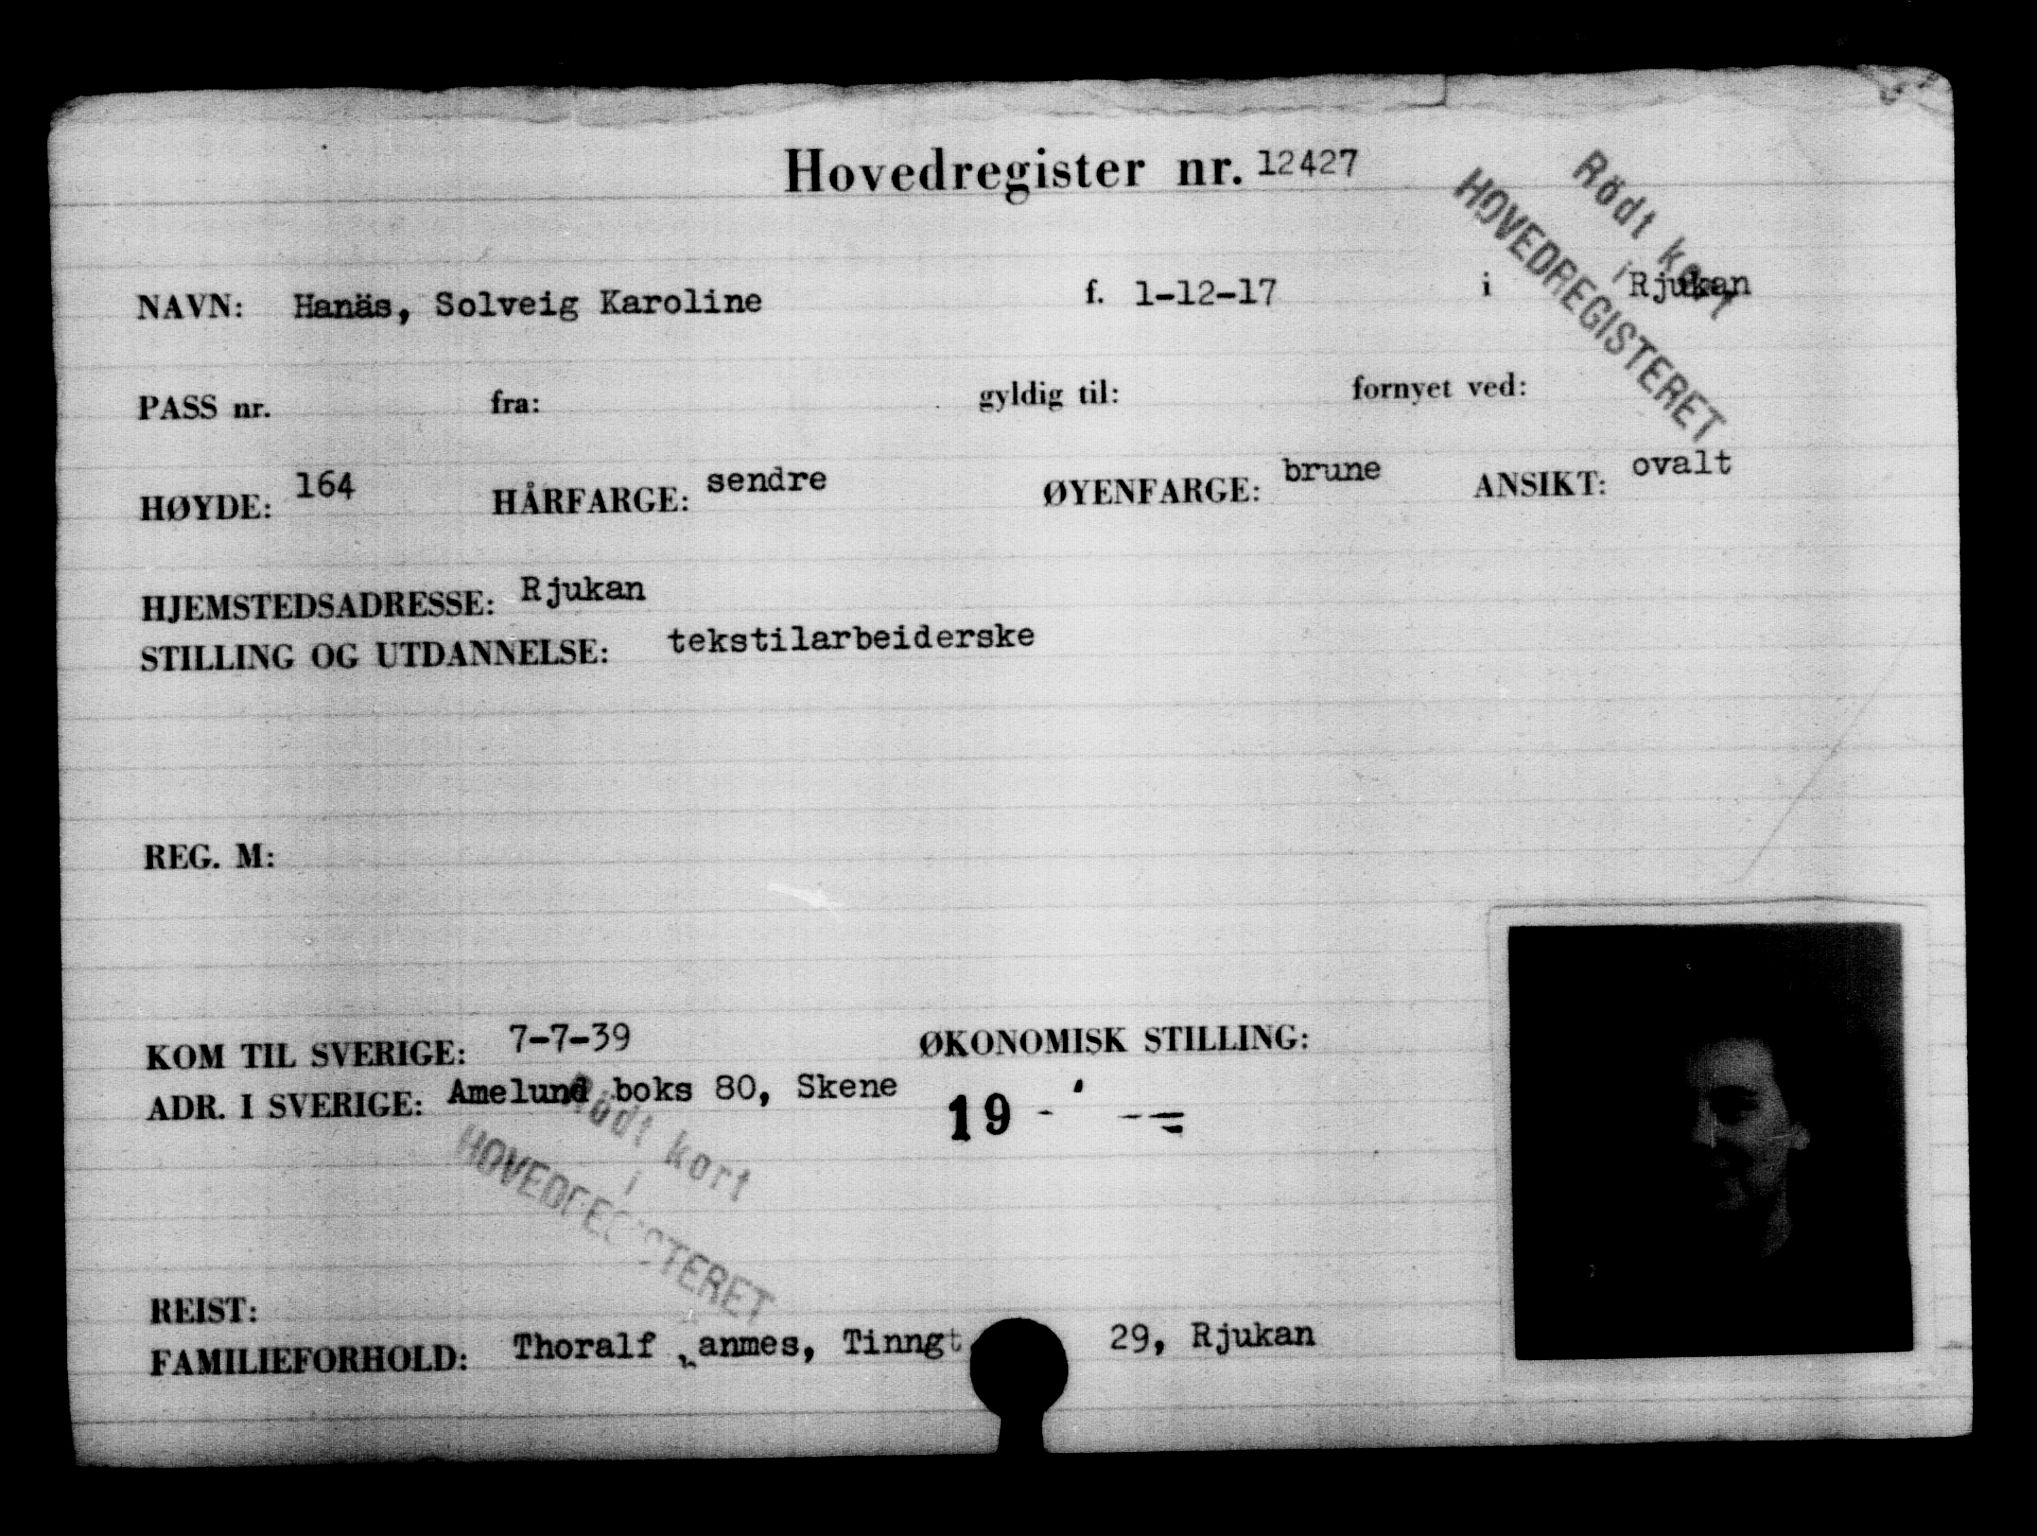 Hovedregister nr. 12427
Rödt kort
i
HOVEDREGISTERET
NAVN: Hanäs, Solveig Karoline f. 1-12-17 i Rjukan
PASS nr. fra: gyldig til: fornyet ved:
HØYDE: 164 HÅRFARGE: sendre ØYENFARGE: brune ANSIKT: ovalt
HJEMSTEDSADRESSE: Rjukan
STILLING OG UTDANNELSE: tekstilarbeiderske
REG. M:
KOM TIL SVERIGE: 7-7-39 ØKONOMISK STILLING:
ADR. I SVERIGE: Amelund boks 80, Skene 19
Rödt kort
i
HOVEDREGISTERET
REIST:
FAMILIEFORHOLD: Thoralf 29, Rjukan